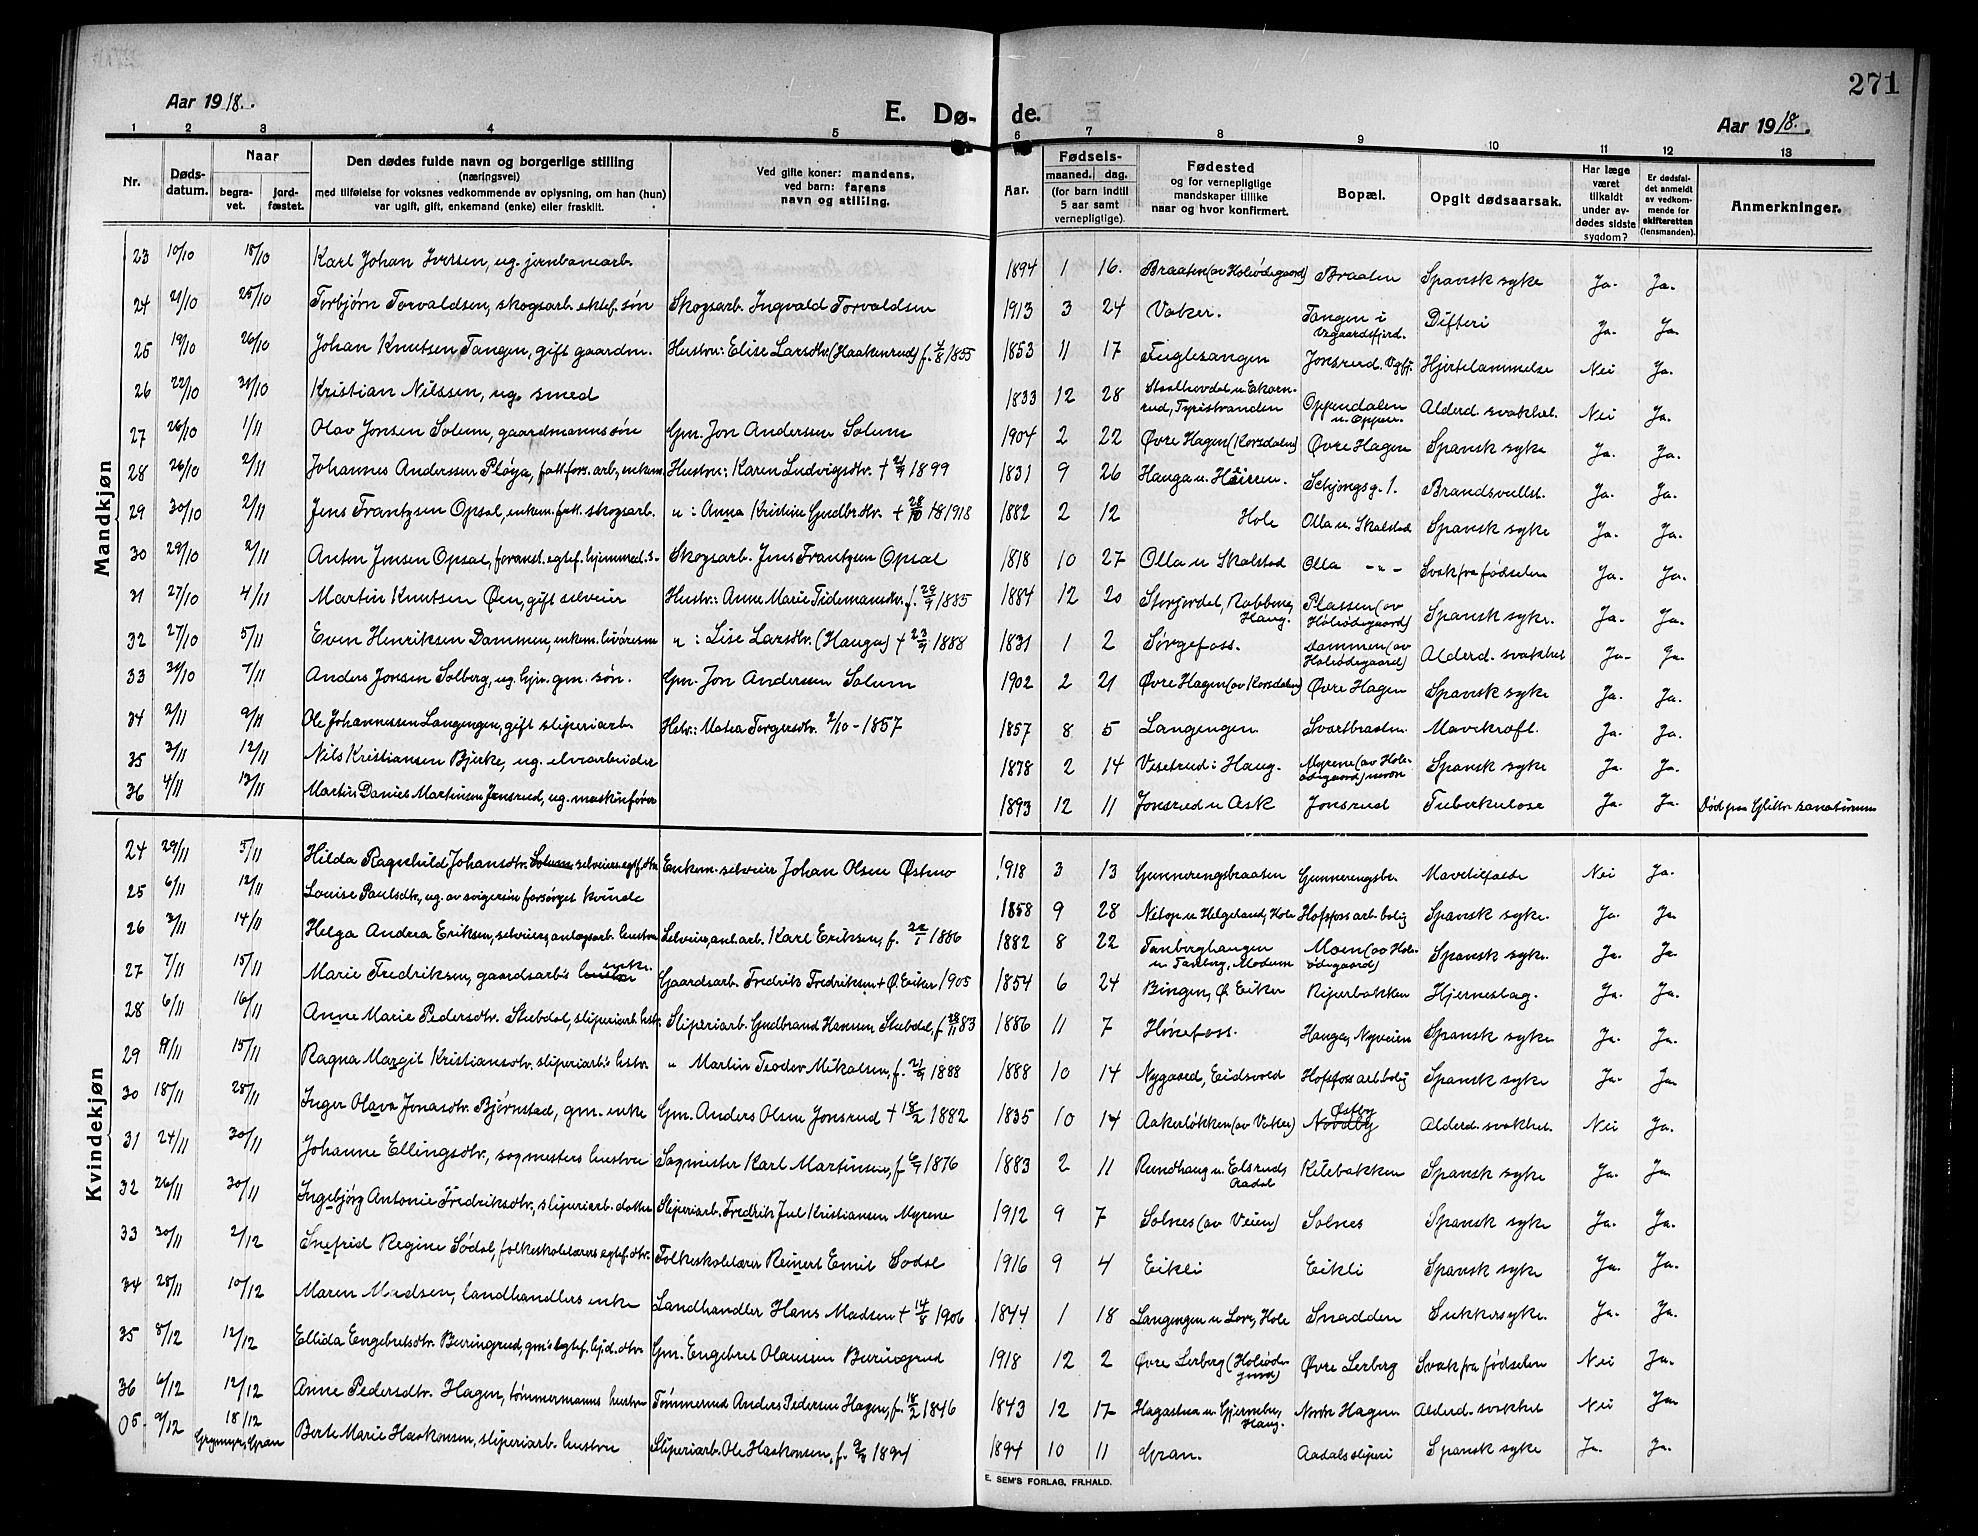 271
Aar 1918.
E. Dø-
de.
Aar 1918.
1 2 3 4 5 6 7 8 9 10 11 12 13
Nr.
Døds-
datum.
Naar
begra-
vet.
jord-
fæstet.
Den dødes fulde navn og borgerlige stilling
(næringsvei)
med tilføielse for voksnes vedkommende av oplysning, om han (hun)
var ugift, gift, enkemand (enke) eller fraskilt.
Ved gifte koner: mandens,
ved barn: farens
navn og stilling.
Aar.
Fødsels-
maaned. dag.
(for barn indtil
5 aar samt
vernepligtige).
Fødested
og for vernepligtige
mandskaper tillike
naar og hvor konfirmert.
Bopæl.
Opgit dødsaarsak.
Har læge
været
tilkaldt
under av-
dødes sidste
sygdom?
Er dødsfal-
det anmeldt
av vedkom-
mende for
skifteretten
(lensmanden).
Anmerkninger.
Mandkjøn
23 19/10 18/10 Karl Johan Iversen, ug. jernbanearb. 1894 1 16. Braaten (av Holeødegaard) Braaten Spansk syke Ja. Ja.
24 21/10 25/10 Torbjørn Torvaldsen, skogsarb. ektef. søn Skogsarb. Ingvald Torvaldsen 1913 3 24 Vaker. Tangen i Difteri Ja. Ja.
25 19/10 26/10 Johan Knutsen Tangen, gift gaardm. Hustru: Elise Larsdtr. (Haakenrud) f. 4/8 1855 1853 11 17 Fuglesangen Jonsrud. Hjertelammelse Nei Ja.
26 22/10 31/10 Kristian Nilssen, ug. smed 1833 12 28 rud, Tyristranden Oppendalen u. Oppen. Alderd. svakhet. Nei Ja.
27 26/10 1/11 Olav Jonsen Solum, gaardmannssøn Gm. Jon Andersen Solum 1904 2 22 Øvre Hagen (Korsdalen) Øvre Hagen Spansk syke Ja. Ja.
28 26/10 2/11 Johannes Anderssen Pløya, fatt. fors. arb., enkem. Hustru: Karen Ludvigsdtr. + 1899 1831 9 26 Hauga u. Schjongsg. 1. Ja. Ja.
29 30/10 2/11 Jens Frantzsen Opsal, enkem. fatt. skogsarb. " : Anna Kristine Gudbr.dtr. + 28/10 1918 1882 2 12 Hole Olla u. Skalstad Spansk syke Ja. Ja.
30 29/10 2/11 Anton Jensen Opsal, Skogsarb. Jens Frantzsen Opsal 1818 10 27 Olla u Skalstad Olla -"- Svak fra fødselen Ja. Ja.
31 27/10 4/11 Martin Knutsen Øen, gift selveier Hustru: Anne Marie Tidemansdtr. f. 1885 1884 12 20 Storjordet, Haug. Plassen (av Holeødegaard) Spansk syke. Ja. Ja.
32 27/10 5/11 Even Henriksen Dammen, enkem. livøresm " : Lise Larsdtr. (Hauga) + 1888 1831 1 2 Sørgefoss. Dammen (av Holeødegaard) Alderd. svakhet Ja- Ja.
33 31/10 7/11 Anders Jonsen Solberg, ug. hjv. gm. søn. Gm. Jon Andersen Solum 1902 2 21 Øvre Hagen (av Korsdalen) Øvre Hagen Spansk syke Ja. Ja.
34 2/11 9/11 Ole Johannessen Langengen, gift sliperiarb. Hstr.: Matea Torgersdtr. 2/10 - 1857 1857 8 5 Langengen. Svartbraaten. Mavekræft. Ja. Ja.
35 3/11 12/11 Nils Kristiansen Bjerke, ug. elvearbeider 1878 2 14 Veserud i Haug. Myrene (av Hole- Spansk syke Ja. Ja.
36 4/11 13/11 Martin Daniel Martinsen Jonsrud, ug. maskinfører 1893 12 11 Jonsrud u Ask Jonsrud Tuberkulose Ja. Ja. Død paa Glittre sanatorium
Kvindekjøn
24 29/11 5/11 Hilda Ragnhild Johansdtr. Solum selveiers egtf. dtr. Enkem. selveier Johan Olsen Østmo 1918 3 13 Gunnerengsbraaten Gunnerengsbr. Nei Ja.
25 6/11 12/11 Louise Paulsdtr, ug. av svigersøn forsørget kvinde 1858 9 28 u Helgeland, Hole Hofsfoss arb. bolig Spansk syke. Ja. Ja.
26 3/11 14/11 Helga Andrea Eriksen, selveiers, anlægsarb. hustru Selveier, anl. arb. Karl Eriksen, f. 22/1 1886 1882 8 22 Tanberghaugen u Tanberg, Modum Moen (av Hole- ødegaard) Spansk syke. Ja. Ja.
27 7/11 15/11 Marie Fredriksen, gaardsarb's hustru enke. Gaardsarb. Fredrik Fredriksen + Ø. Eiker 1905 1854 6 24 Bingen, Ø. Eiker Riperbakken Hjerneslag. Ja. Ja.
28 6/11 16/11 Anne Marie Pedersdtr. Stubdal, sliperiarb. hustr. Sliperiarb. Gudbrand Hansen Stubdal, f. 28/11 83 1886 11 7 Hønefoss. Hauga, Nyveien Spansk syke Ja. Ja.
29 11/11 15/11 Ragna Margit Kristiansdtr. sliperiarb's hustr. " Martin Teodor Mikalsen, f. 1888 1888 10 14 Nygaard, Eidsvold Hofsfoss arb. bolig Spansk syke Ja. Ja.
30 18/11 28/11 Inger Olava Jonasdtr. Bjørnstad, gm. enke Gm. Anders Olsen Jonsrud + 18/2 1882 1835 10 14 Aakerløkken (av Vaker) Nordby Østby Alderd. svakhet. Nei Ja.
31 24/11 30/11 Johanne Ellingsdtr., sagmesters hustru Sagmester Karl Martinsen, f. 1876 1883 2 11 Rundhaug u. Elsrud, Aadal Kilebakken Spansk syke Ja. Ja.
32 26/11 30/11 Ingebjørg Antonie Fredriksdtr., sliperiarb. datter Sliperiarb. Fredrik Jul Kristiansen Myrene 1912 9 7 Solnes (av Veien) Solnes Spansk syke Ja. Ja.
33 30/11 2/12 Snefrid Regine Sødal, folkeskolelærers egtef. dtr. Folkeskolelærer Reinert Emil Sødal 1916 9 4 Eikli Eikli Spansk syke Ja. Ja.
34 28/11 10/12 Maren Madsen, landhandlers enke Landhandler Hans Madsen + 14/8 1906 1844 1 18 Langengen u Lore, Hole Snadden Sukkersyke. Ja. Ja.
35 8/12 12/12 Ellida Engebretsdtr. Buringrud, gm's egtef. hjd. dtr. Gm. Engebret Olausen Buringrud 1918 12 2 Øvre Lerberg Øvre Lerberg Svak fra fødselen Nei Ja.
36 6/12 12/12 Anne Pedersdtr. Hagen, tømmermanns hustru Tømmerm. Anders Pedersen Hagen, f. 18/2 1846 1843 12 17 Haug. Nordre Hagen Alderd. svakhet Nei Ja.
05- 9/12 18/12 Grymyr, Gran Berte Marie Haakonsen, sliperiarb. hustru Sliperiarb. Ole Haakonsen, f. 1894 1894 10 11 Gran. Aadals sliperi Spansk syke Ja. Ja.
E. SEM'S FORLAG, FR.HALD.